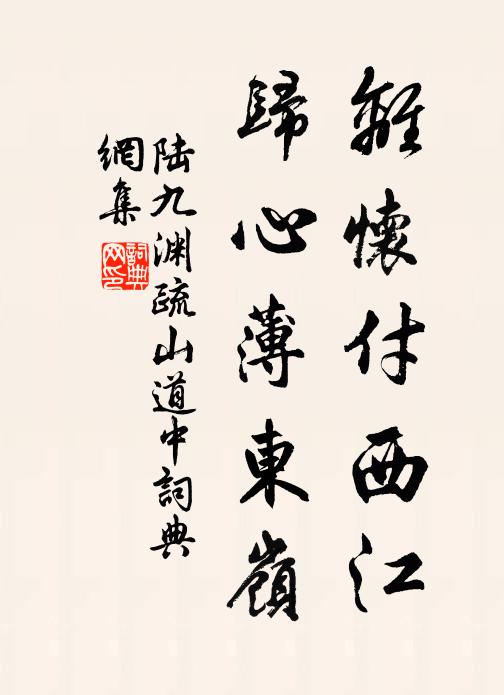 離懷付西江
歸心薄東嶺
陆九渊疏山道中詞典
網集
詞典网印